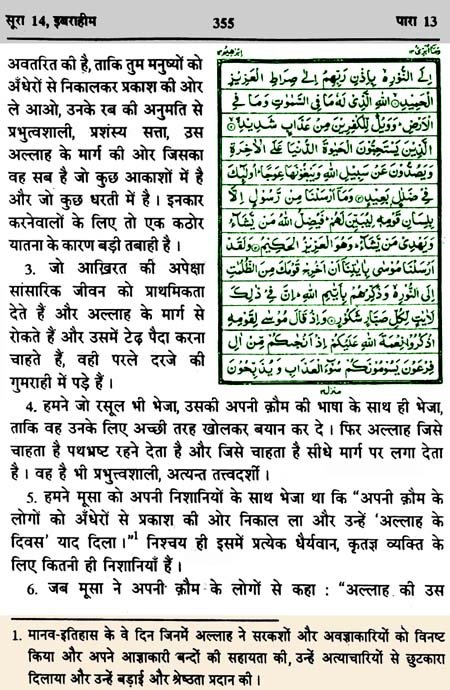 सूरा 14, इबराहीम 355 पारा 13
अवतरित की है, ताकि तुम मनुष्यों को
अँधेरों से निकालकर प्रकाश की ओर
ले आओ, उनके रब की अनुमति से
प्रभुत्वशाली, प्रशंस्य सत्ता, उस
अल्लाह के मार्ग की ओर जिसका
वह सब है जो कुछ आकाशों में है
और जो कुछ धरती में है। इनकार
करनेवालों के लिए तो एक कठोर
यातना के कारण बड़ी तबाही है।
3. जो आख़िरत की अपेक्षा
सांसारिक जीवन को प्राथमिकता
देते हैं और अल्लाह के मार्ग से
रोकते हैं और उसमें टेढ़ पैदा करना
चाहते हैं, वही परले दरजे की
गुमराही में पड़े हैं।
إِلَى النُّورِ بِإِذْنِ رَبِّهِمْ إِلَى صِرَاطِ الْعَزِيزِ
الْحَمِيدِ اللَّهِ الَّذِي لَهُ مَا فِي السَّمٰوٰتِ وَمَا فِي
الْأَرْضِ وَوَيْلٌ لِلْكٰفِرِينَ مِنْ عَذَابٍ شَدِيدٍ
الَّذِينَ يَسْتَحِبُّونَ الْحَيٰوةَ الدُّنْيَا عَلَى الْآخِرَةِ
وَيَصُدُّونَ عَنْ سَبِيلِ اللَّهِ وَيَبْغُونَهَا عِوَجًا أُولٰٓئِكَ
فِي ضَلٰلٍ بَعِيدٍ وَمَا أَرْسَلْنَا مِنْ رَسُولٍ إِلَّا
بِلِسَانِ قَوْمِهِ لِيُبَيِّنَ لَهُمْ فَيُضِلُّ اللَّهُ مَنْ يَشَاءُ
وَيَهْدِي مَنْ يَشَاءُ وَهُوَ الْعَزِيزُ الْحَكِيمُ وَلَقَدْ
أَرْسَلْنَا مُوسَى بِآيٰتِنَا أَنْ أَخْرِجْ قَوْمَكَ مِنَ الظُّلُمٰتِ
إِلَى النُّورِ وَذَكِّرْهُمْ بِأَيّٰمِ اللَّهِ إِنَّ فِي ذٰلِكَ
لَآيٰتٍ لِكُلِّ صَبَّارٍ شَكُورٍ وَإِذْ قَالَ مُوسَى لِقَوْمِهِ
اذْكُرُوا نِعْمَةَ اللَّهِ عَلَيْكُمْ إِذْ أَنْجٰكُمْ مِنْ آلِ
فِرْعَوْنَ يَسُومُونَكُمْ سُوءَ الْعَذَابِ وَيُذَبِّحُونَ
4. हमने जो रसूल भी भेजा, उसकी अपनी क़ौम की भाषा के साथ ही भेजा,
ताकि वह उनके लिए अच्छी तरह खोलकर बयान कर दे। फिर अल्लाह जिसे
चाहता है पथभ्रष्ट रहने देता है और जिसे चाहता है सीधे मार्ग पर लगा देता
है। वह है भी प्रभुत्त्वशाली, अत्यन्त तत्त्वदर्शी।
5. हमने मूसा को अपनी निशानियों के साथ भेजा था कि "अपनी क़ौम के
लोगों को अँधेरों से प्रकाश की ओर निकाल ला और उन्हें 'अल्लाह के
दिवस' याद दिला।"1 निश्चय ही इसमें प्रत्येक धैर्यवान, कृतज्ञ व्यक्ति के
लिए कितनी ही निशानियाँ हैं।
6. जब मूसा ने अपनी क़ौम के लोगों से कहा : "अल्लाह की उस
1. मानव-इतिहास के वे दिन जिनमें अल्लाह ने सरकशों और अवज्ञाकारियों को विनष्ट
किया और अपने आज्ञाकारी बन्दों की सहायता की, उन्हें अत्याचारियों से छुटकारा
दिलाया और उन्हें बड़ाई और श्रेष्ठता प्रदान की।